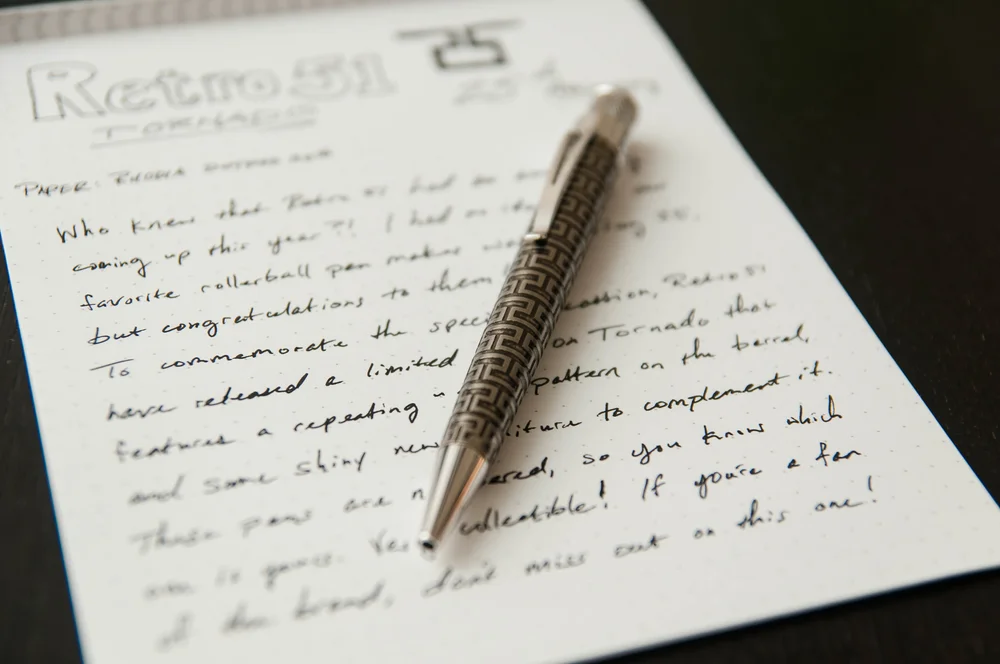 Retro 51
25
TORNADO
PAPER: RHODIA
Who knew that Retro 51 had an
coming up this year?! I had no idea
favorite rollerball pen maker was 25,
but congratulations to them
To commemorate the special Retro 51
have released a limited Tornado that
features a repeating pattern on the barrel,
and some shiny new to complement it.
These pens are so you know which
one is yours. Very collectible! If you're a fan
of the brand, don't miss out on this one!